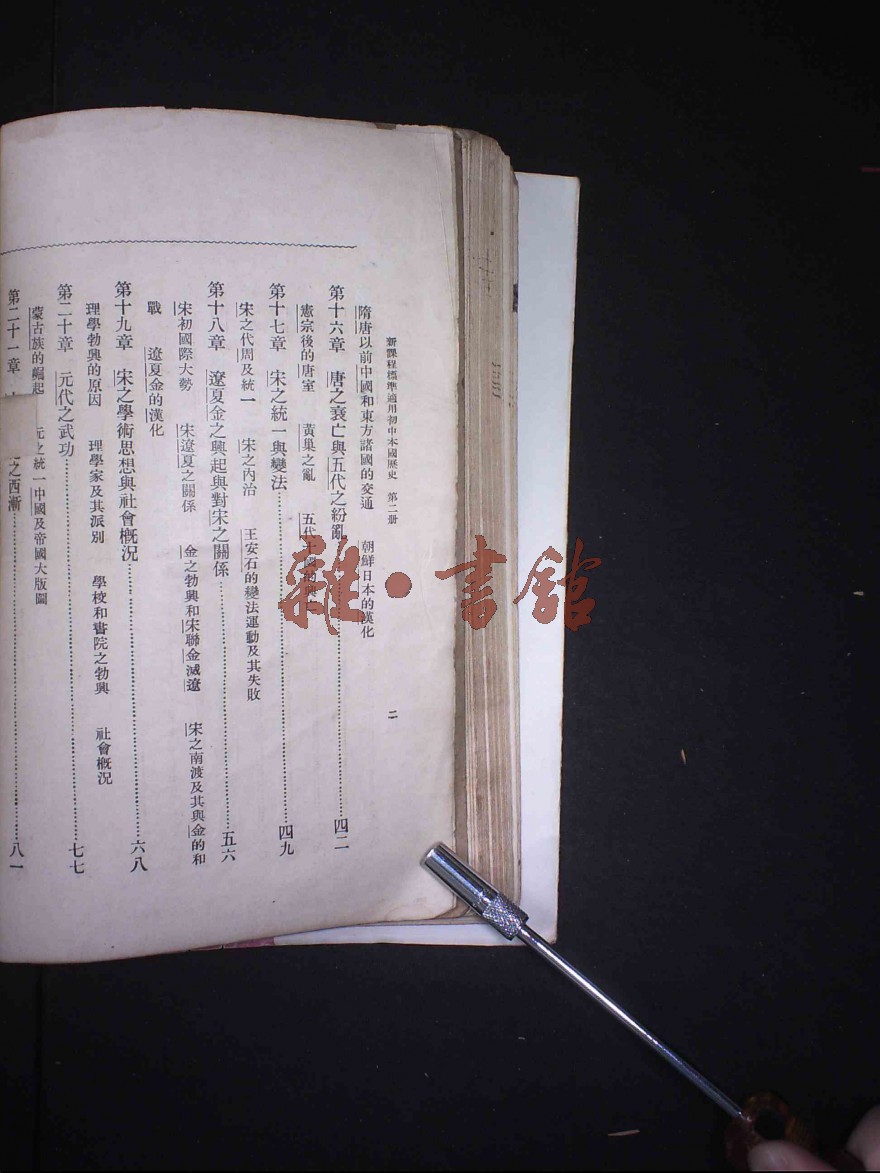 新課程標準適用初中本國歷史 第二册 二
隋唐以前中國和東方諸國的交通 朝鮮日本的漢化
第十六章 唐之衰亡與五代之紛亂 四二
憲宗後的唐室 黃巢之亂 五代
第十七章 宋之統一與變法 四九
宋之代周及統一 宋之內治 王安石的變法運動及其失敗
第十八章 遼夏金之興起與對宋之關係 五六
宋初國際大勢 宋遼夏之關係 金之勃興和宋聯金滅遼 宋之南渡及其與金的和
戰 遼夏金的漢化
第十九章 宋之學術思想與社會概況 六八
理學勃興的原因 理學家及其派別 學校和書院之勃興 社會概況
第二十章 元代之武功 七七
蒙古族的崛起 元之統一中國及帝國大版圖
第二十一章 之西漸 八一
雜·書館